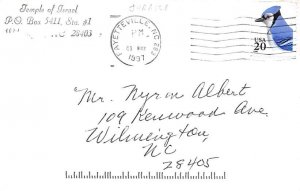 Temple of Israel
P.O. Box 5411, Sta. #1
NC 28403
FAYETTEVILLE, NC 283
P M
03 MAR
1997
USA
20
Mr. Myron Albert
109 Kenwood Ave.
Wilmington,
NC
28405